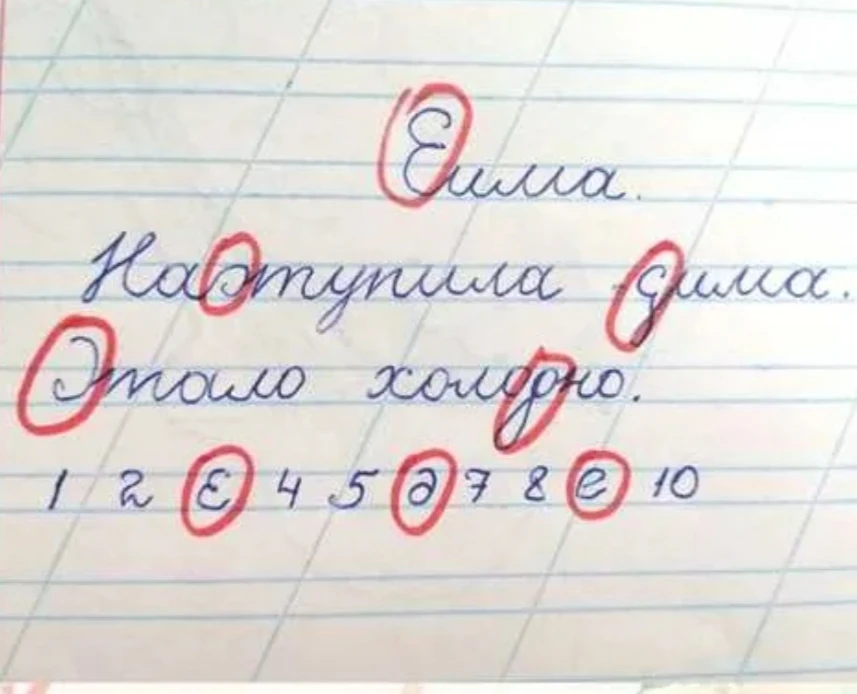 Еима.
Наэтупила дима.
Этало холодно.
1 2 Ɛ 4 5 д 7 8 е 10